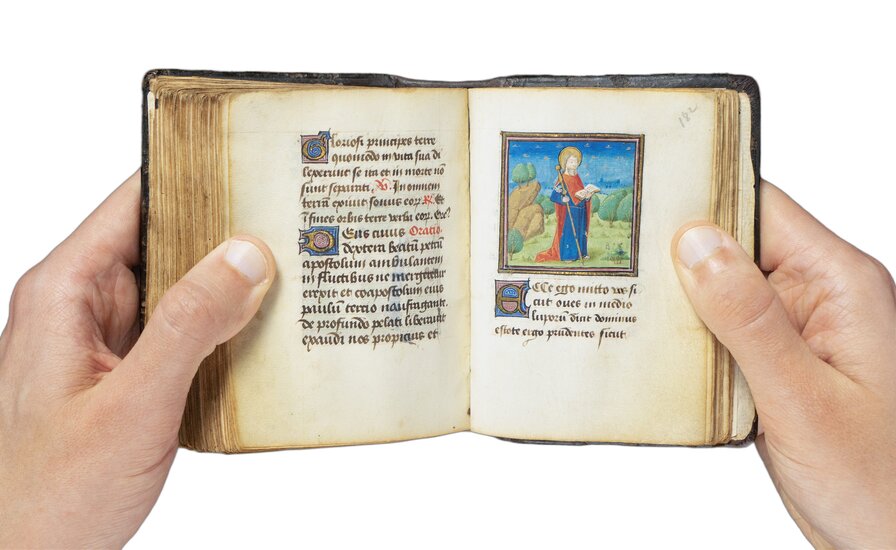 Gloriosi principes terre
quomodo in vita sua di
lexerunt se ita et in morte nō
sunt separati. V. In omnem
terrā exivit sonus eor. R. Et
ī fines orbis terre verba eor. Ore.
Deus cuius Oratio
dextera beatū petrū
apostolum ambulantem
in fluctibus ne mergeretur
erexit et coapostolum eius
paulū tercio naufragante
de profundo pelagi liberavit
exaudi nos propicius et
182
Ecce ego mitto vos si
cut oves in medio
luporū dicit dominus
estote ergo prudentes sicut